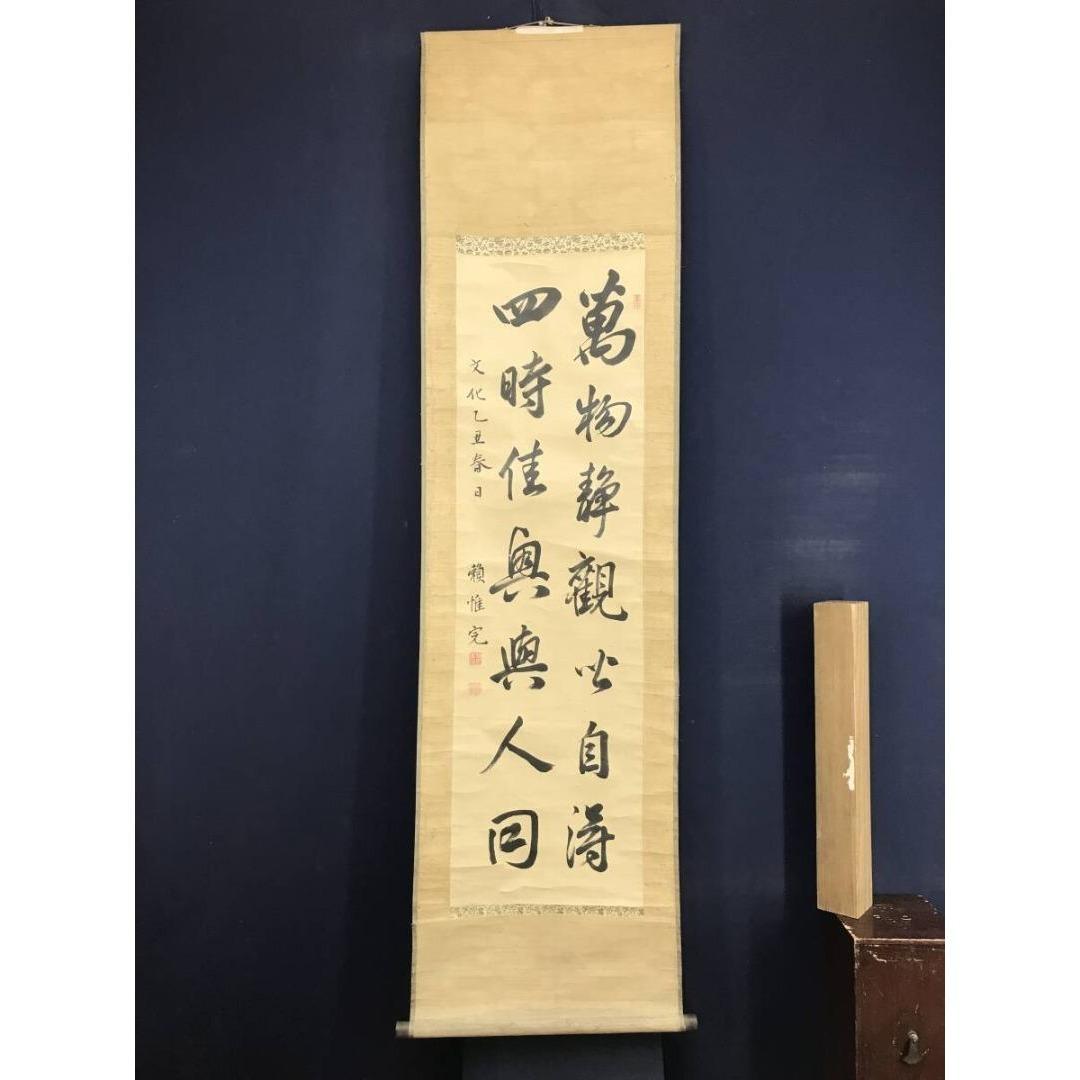 萬物靜觀皆自得
四時佳興與人同
文化乙丑春日 賴惟完